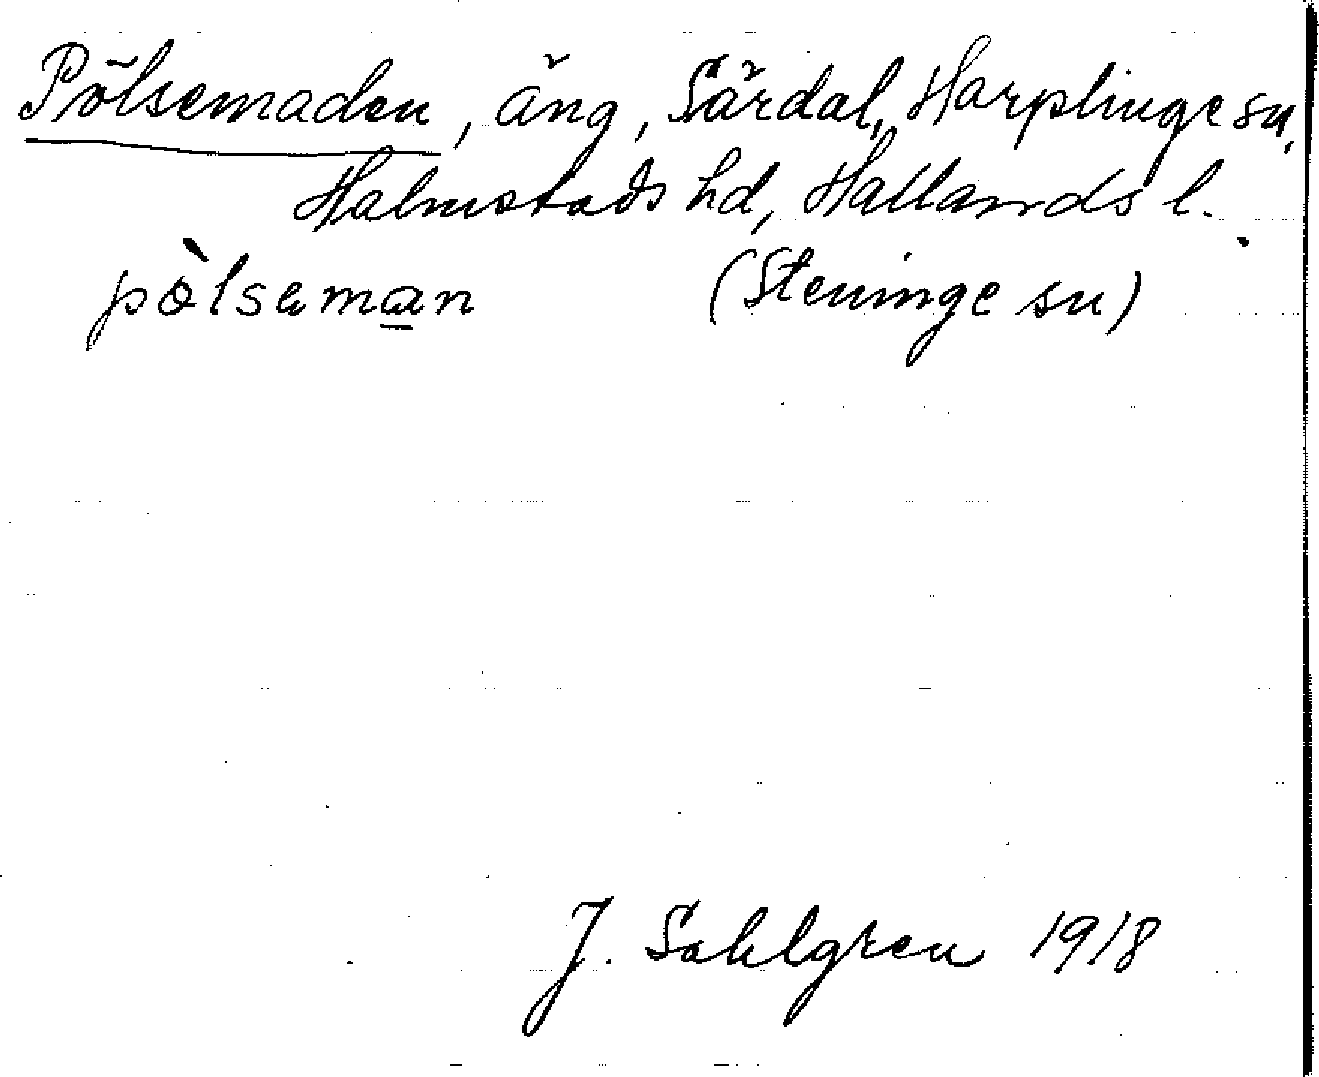 Pölsemaden, äng, Särdal, Harplinge sn,
Halmstads hd, Hallands l.
pòlsəman (Steninge sn)
J. Sahlgren 1918